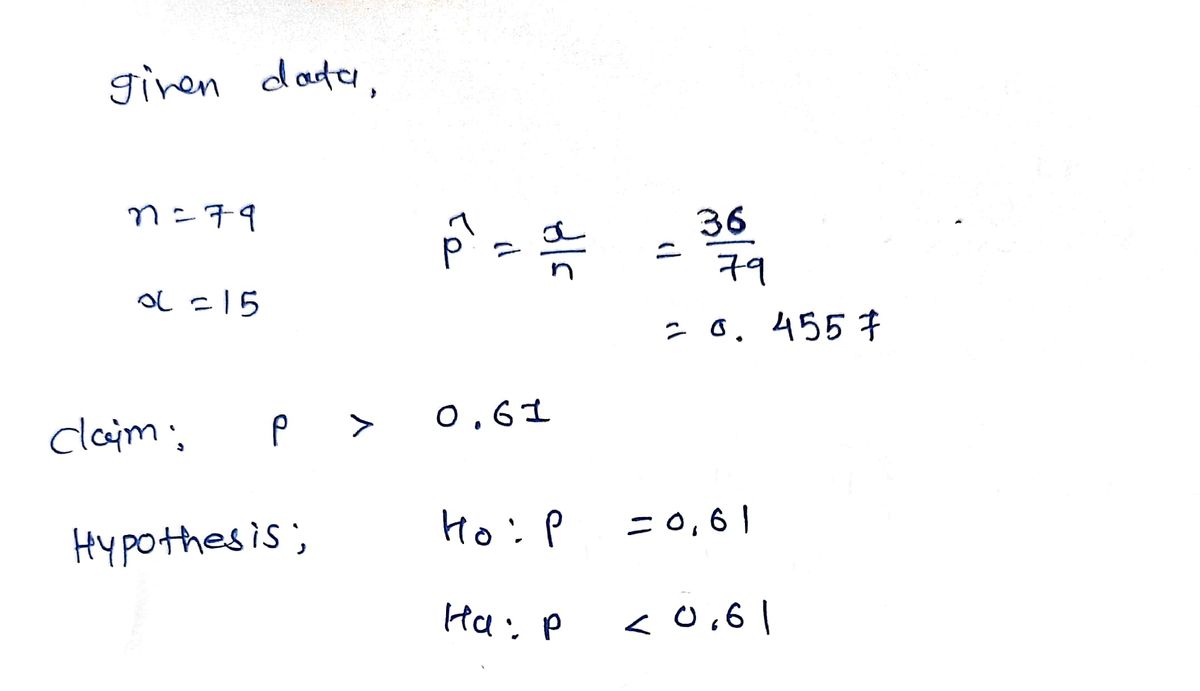 given data,
n = 79
x = 15
p̂ = x/n = 36/79
= 0.4557
claim; p > 0.61
Hypothesis; Ho: p = 0.61
Ha: p < 0.61